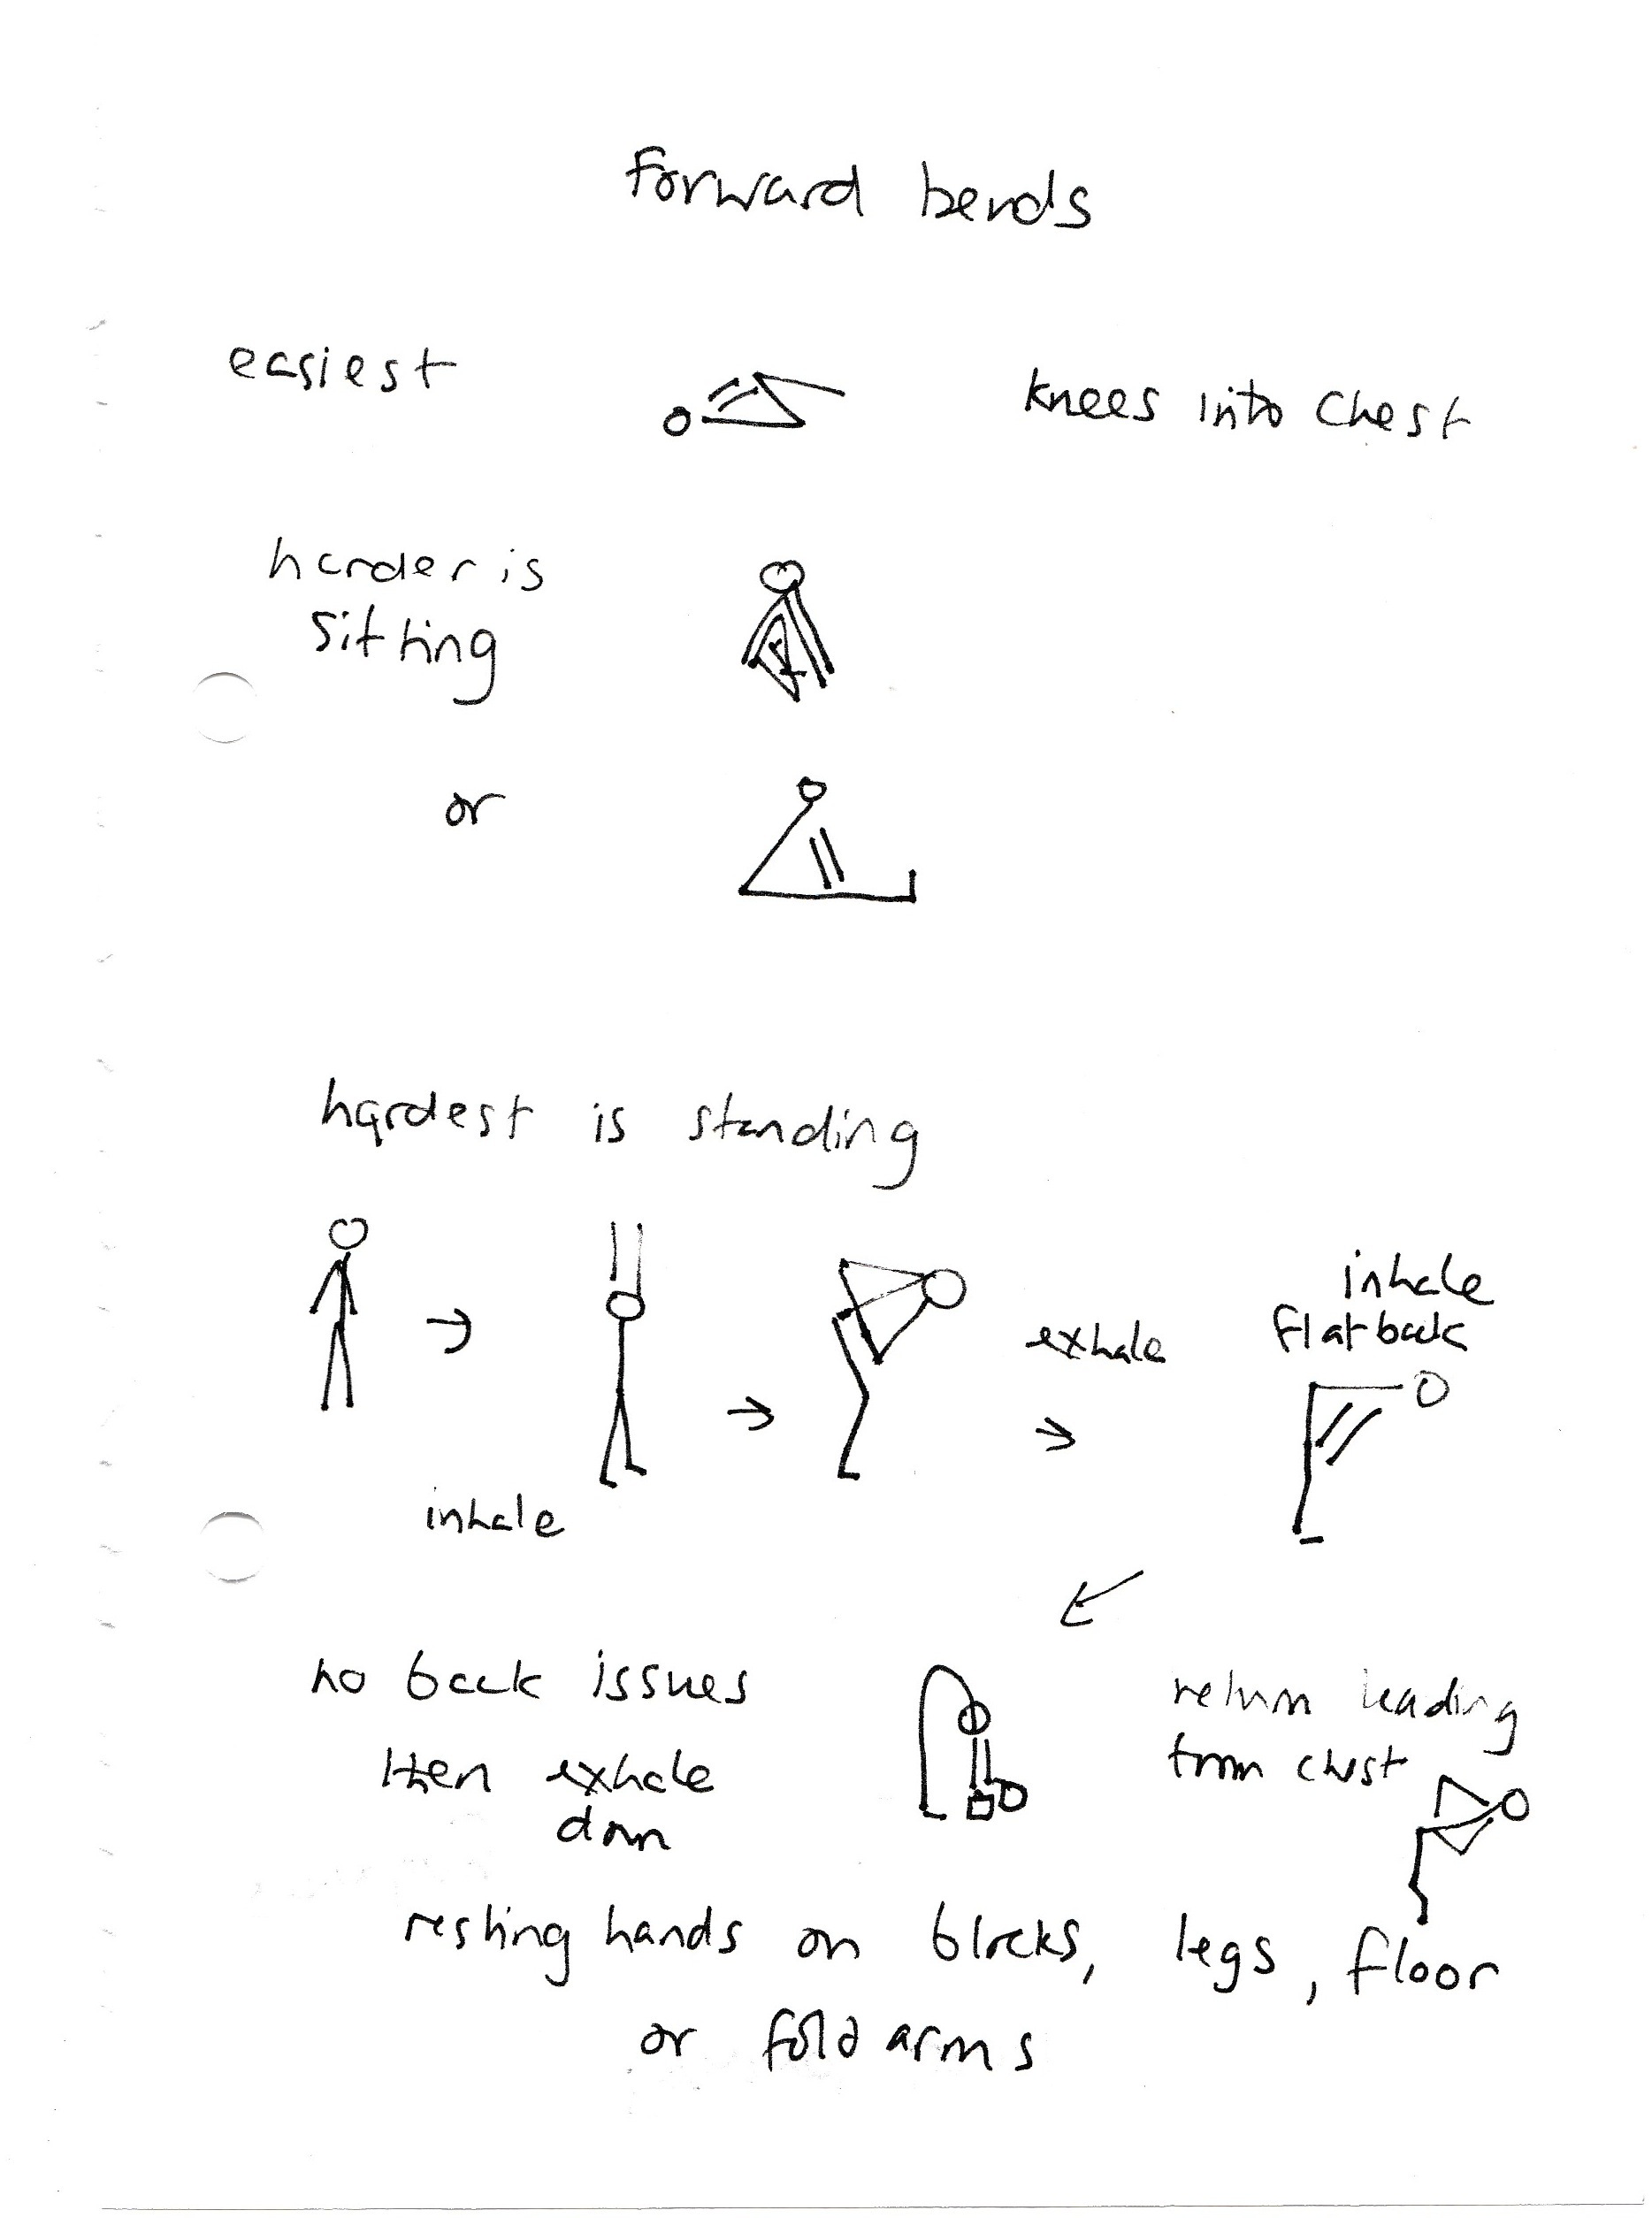 forward bends
easiest
knees into chest
harder is
sitting
or
hardest is standing
inhale
exhale
inhale
flat back
no back issues
then exhale
down
return leading
from chest
resting hands on blocks, legs, floor
or fold arms